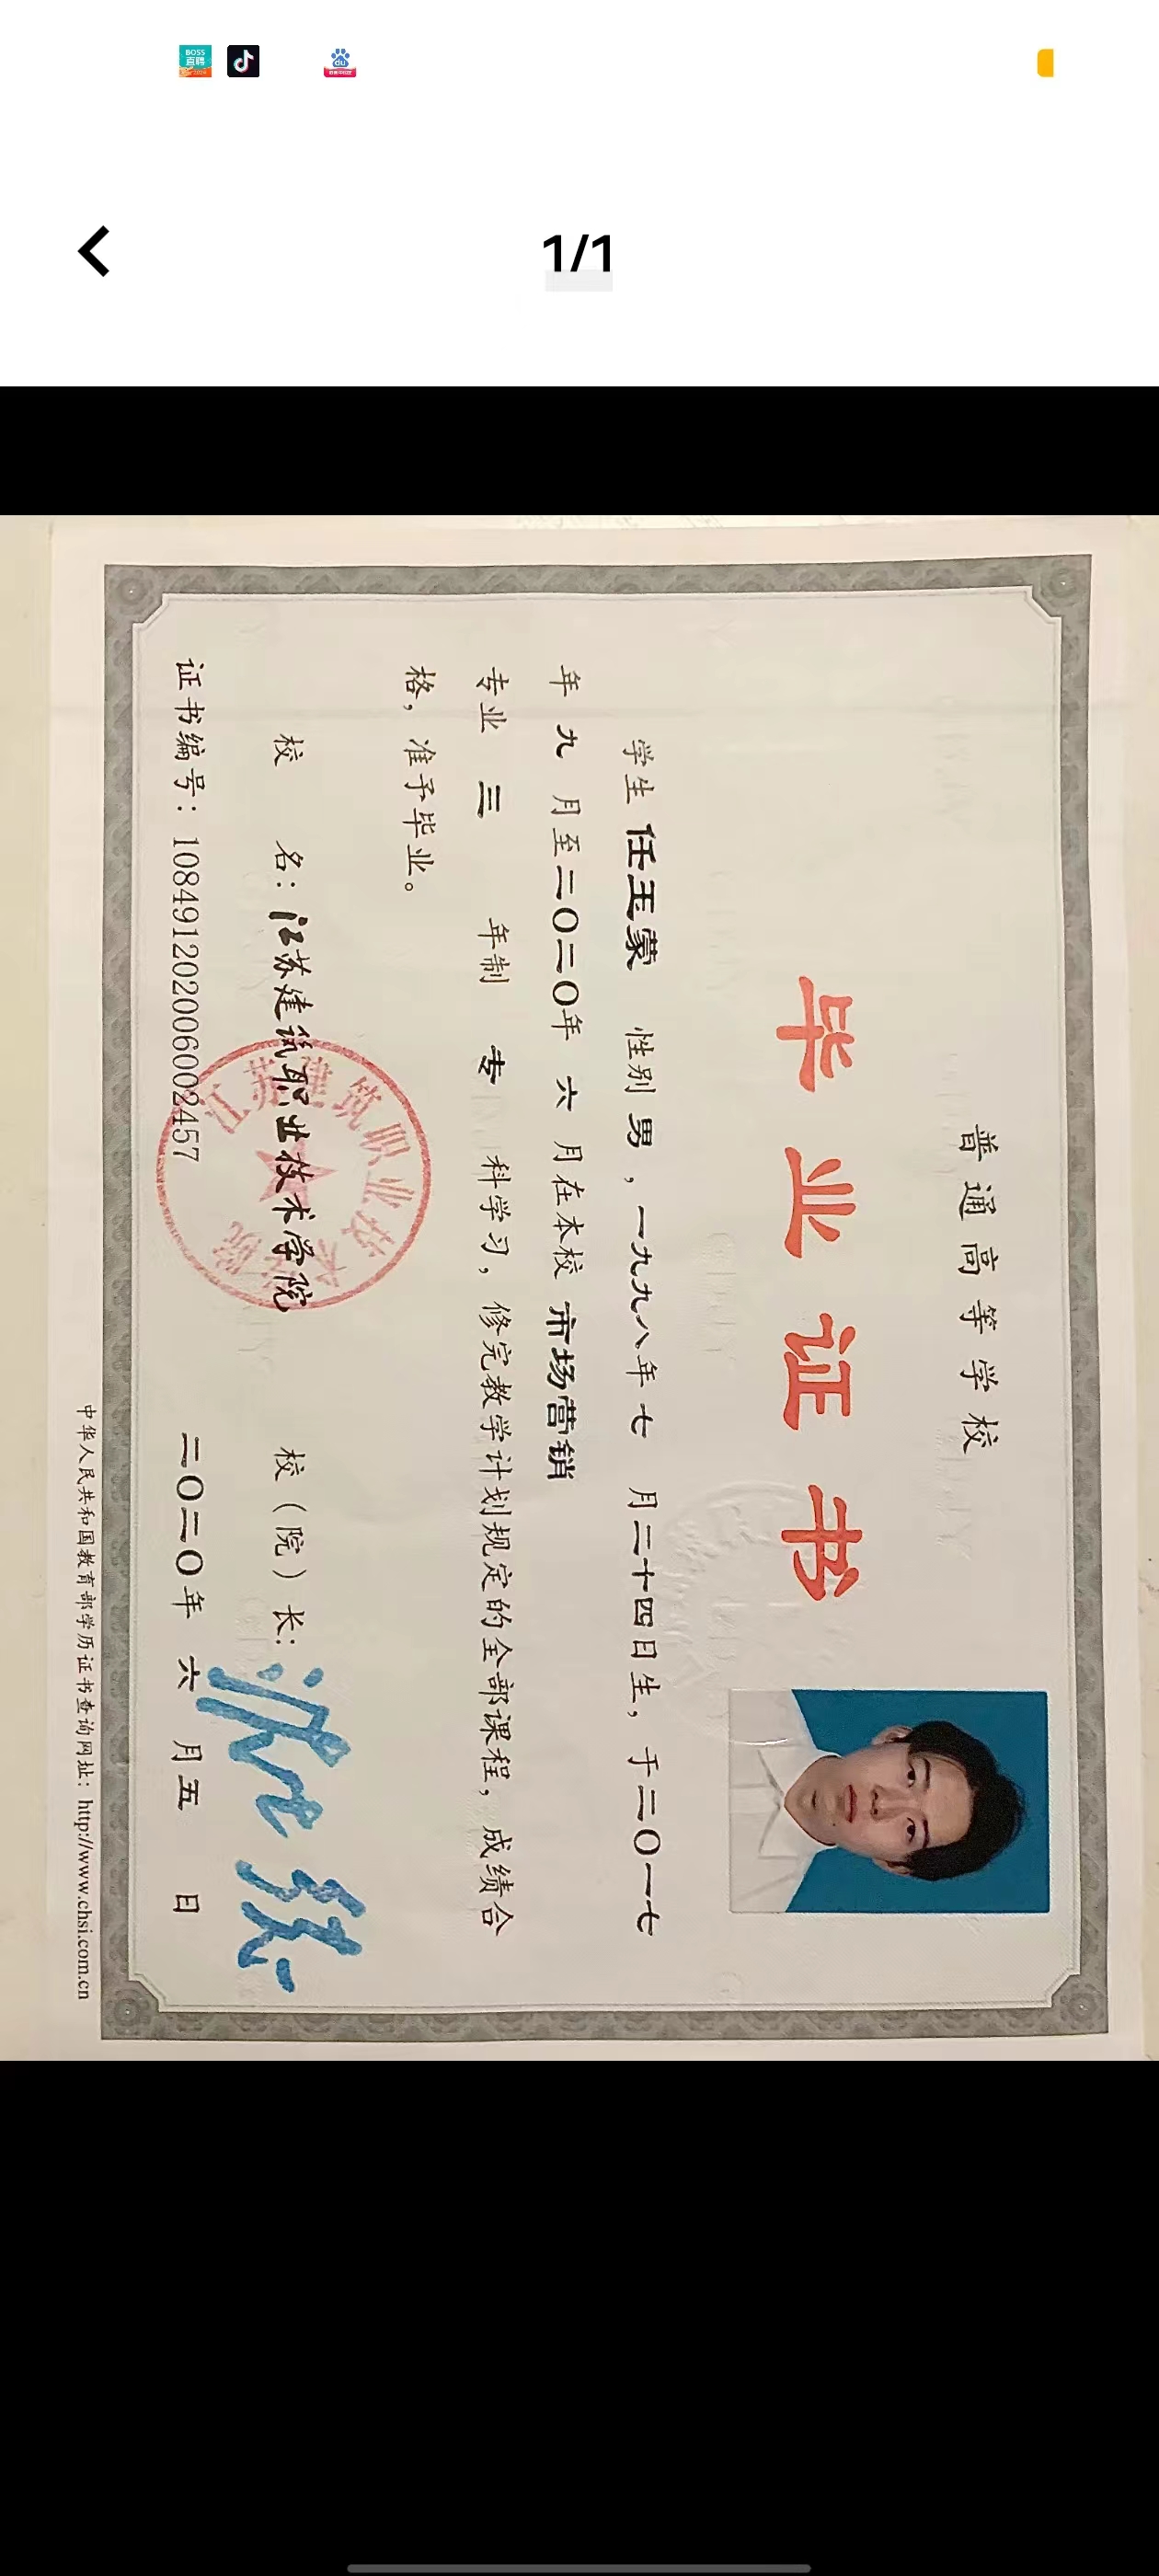 BOSS
直聘
du
1/1
普通高等学校
毕业证书
学生 任玉蒙 性别 男，一九九八年 七 月二十四日生，于二〇一七
年 九 月至二〇二〇年 六 月在本校 市场营销
专业 三 年制 专 科学习，修完教学计划规定的全部课程，成绩合
格，准予毕业。
校 名：江苏建筑职业技术学院 校（院）长：
江苏建筑职业技术学院
证书编号：108491202006002457 二〇二〇年 六 月五 日
中华人民共和国教育部学历证书查询网址：http://www.chsi.com.cn